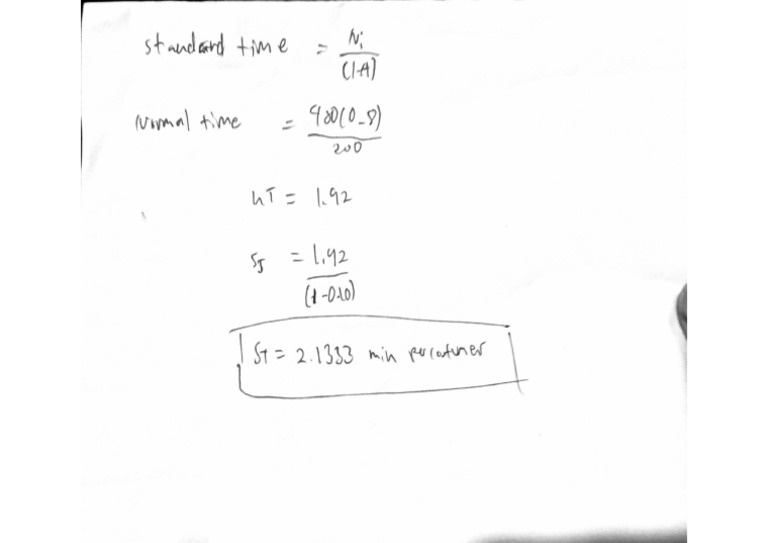 standard time = Ni / (1-A)
Normal time = 480(0.8) / 200
NT = 1.92
ST = 1.92 / (1-0.10)
ST = 2.1333 min per customer